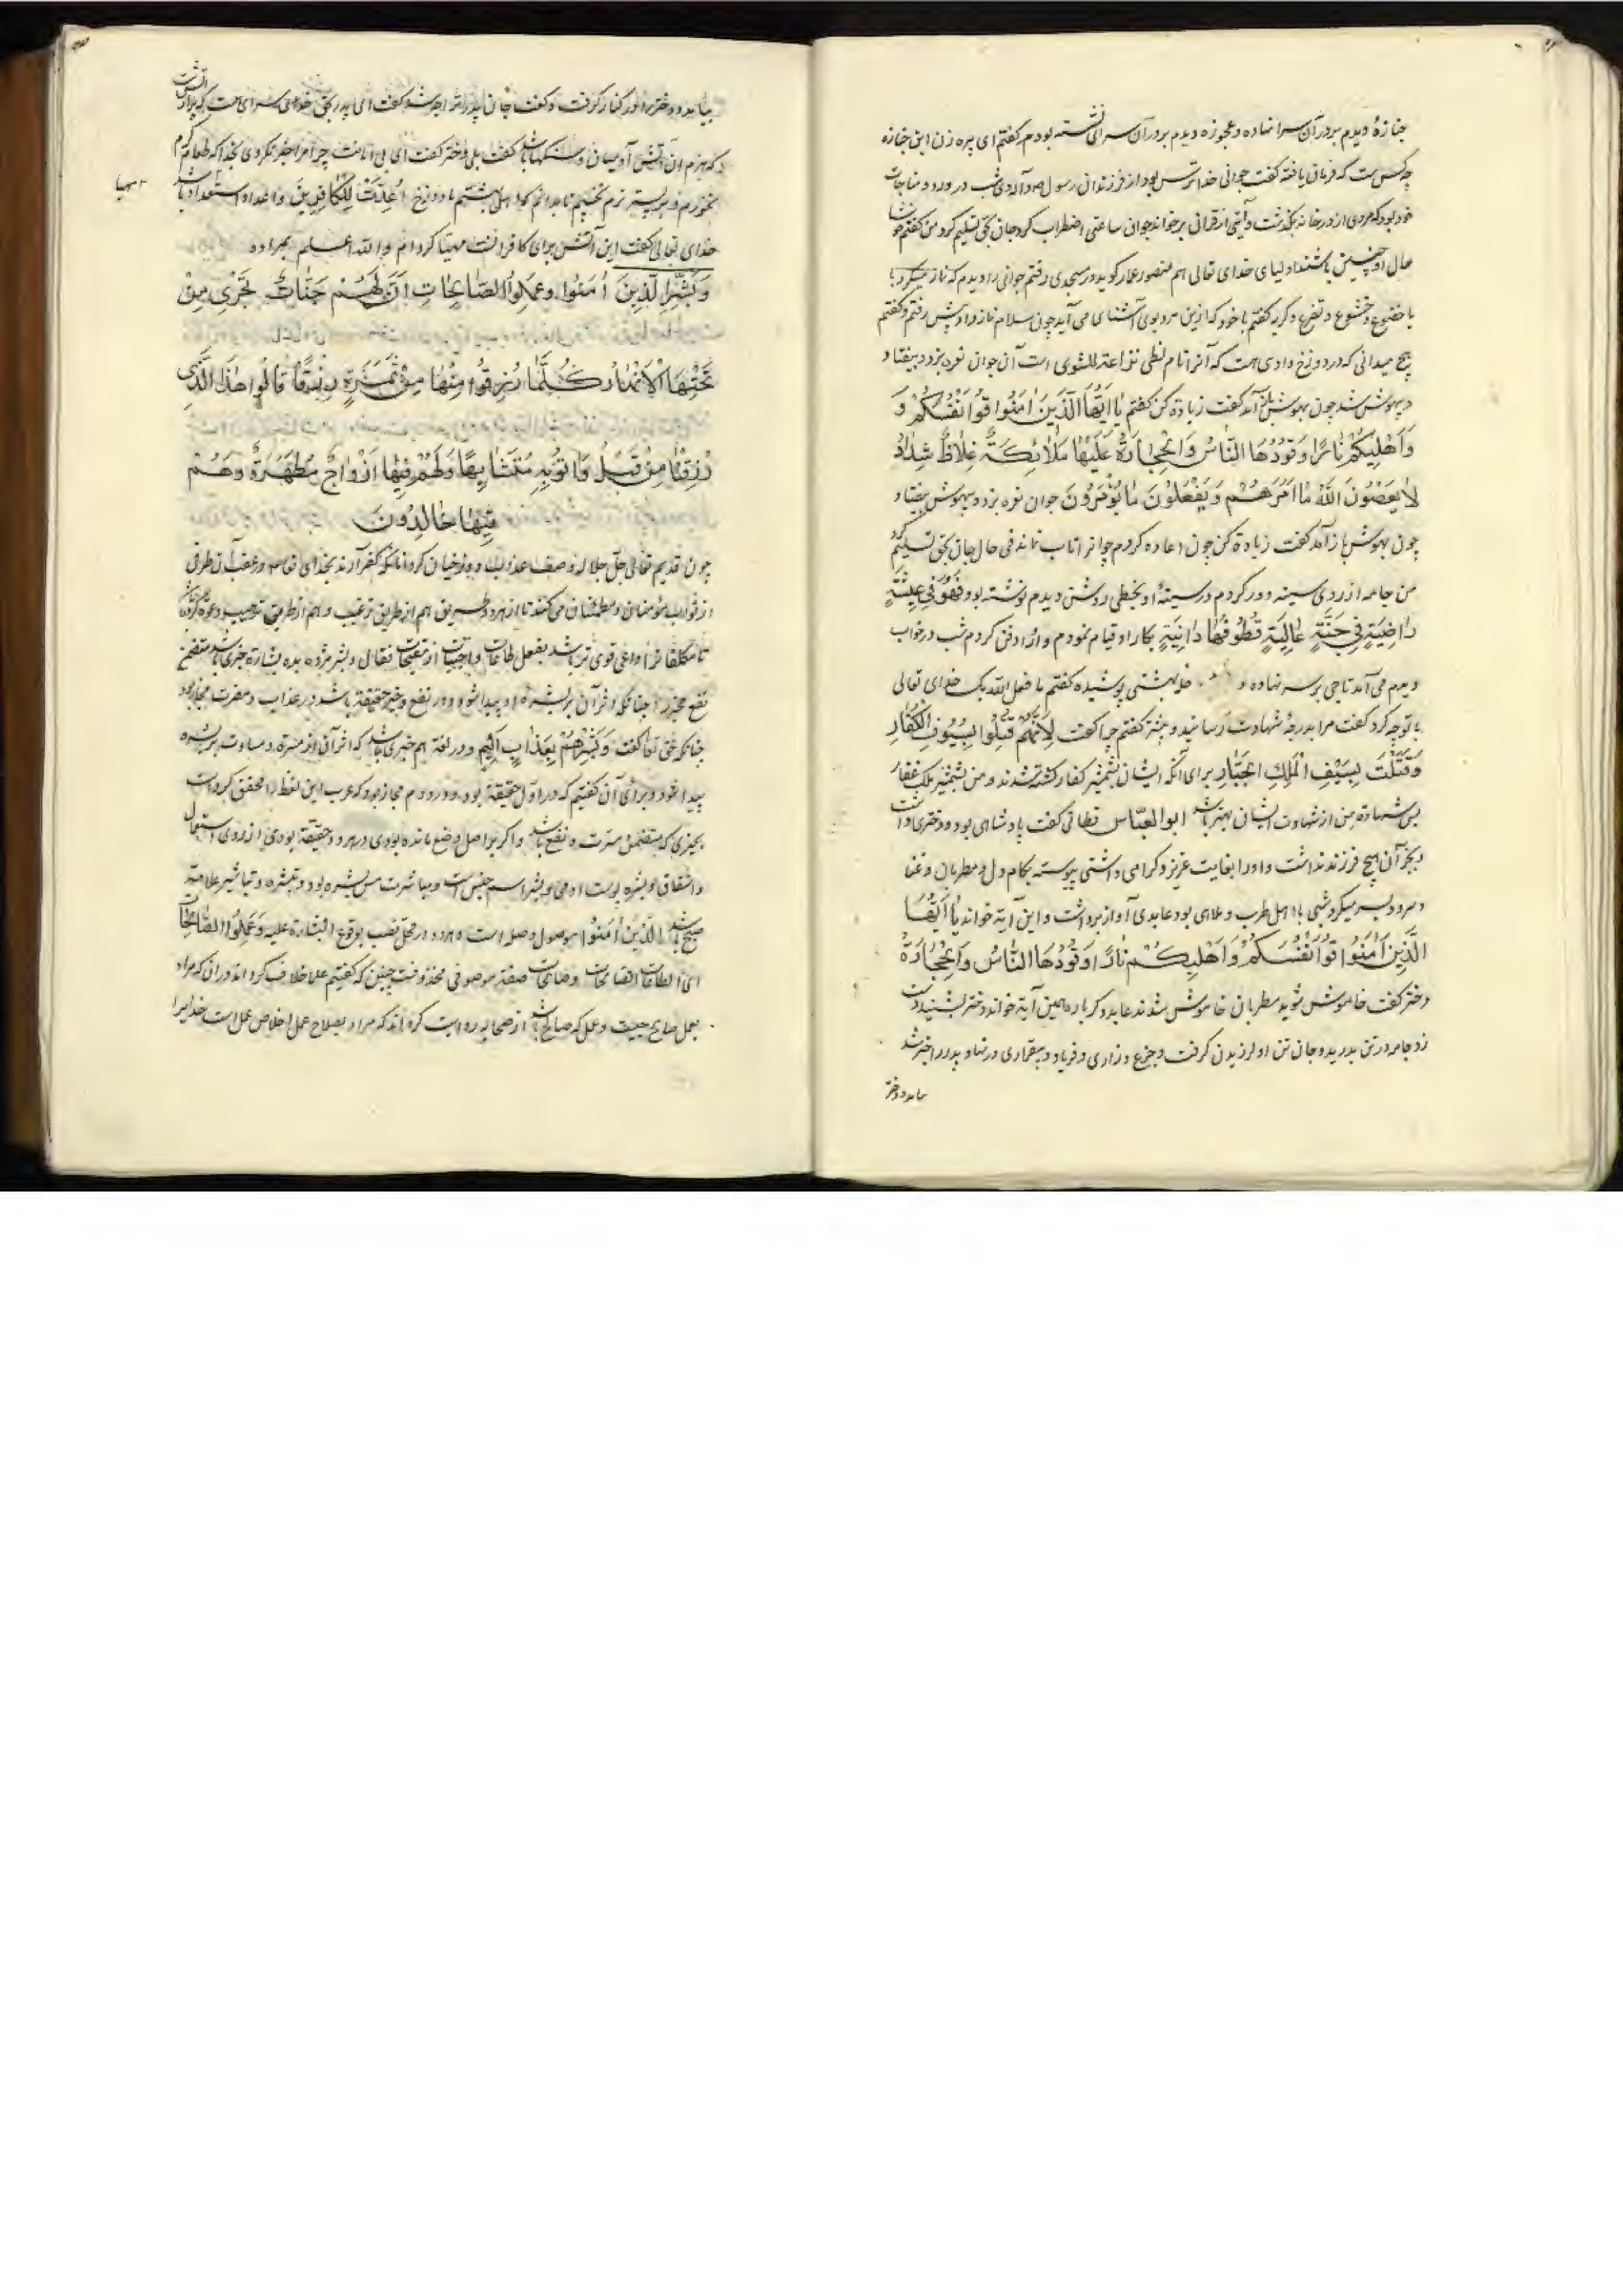 جنازهٔ دیدم بر در آن سرا نهاده و عجوزه دیدم بر در آن سرای نشسته بودم کفتم ای پیره زن این جنازه
چه کس است که فرمان یافته کفت جوانی خدا ترس بود از فرزندان رسول ص و آله دی شب در ورد و مناجات
خود بود که مردی از در خانه بکذشت و آیتی از قرآن برخواند جوان ساعتی اضطراب کرد جان بحق تسلیم کرد من کفتم
حال او چنین باشند اولیای خدای تعالی هم منصور عمار کوید در مسجدی رفتم جوانی را دیدم که نماز میکرد با
با خضوع و خشوع و تضرع و کریه کفتم با خود که ازین مرد بوی آشنای می آید چون سلام نماز داد پیش رفتم و کفتم
هیچ میدانی که در دوزخ وادی است که آنرا نام لظی نزاعة للشوی است آن جوان نعره بزد و بیفتاد
و بیهوش شد چون بهوش باز آمد کفت زیادة کن کفتم یا ایها الذین امنوا قوا انفسکم و
و اهلیکم نارا وقودها الناس والحجارة علیها ملائکة غلاظ شداد
لا یعصون الله ما امرهم و یفعلون ما یؤمرون جوان نعره بزد و بیهوش بیفتاد
چون بهوش باز آمد کفت زیادة کن چون اعاده کردم جوانرا تاب نماند فی حال جان بحق تسلیم کرد
من جامه از روی سینه و دور کردم در سینهٔ او بخطی روشن دیدم نوشته بود فهو فی عیشة
راضیة فی جنة عالیة قطوفها دانیة بکار او قیام نمودم و او را دفن کردم شب در خواب
دیدم می آمد تاجی بر سر نهاده و بهشتی پوشیده کفتم ما فعل الله بک خدای تعالی
با تو چه کرد کفت مرا بدرجهٔ شهادت رسانید و بیشتر کفتم چرا کفت لانهم قتلوا بسیوف الکفار
و قتلت بسیف الملک الجبار برای آنکه ایشان بشمشیر کفار کشته شدند و من بشمشیر ملک غفار
پس شهادة من از شهادت ایشان بهتر باشد ابو العباس قطاقی کفت پادشاهی بود و دختری داشت
و بجز آن هیچ فرزند نداشت و او را بغایت عزیز و کرامی داشتی پیوسته بکام دل و مطربان و غنا
و سرود بسر میکرد شبی با اهل طرب و ملاهی بود عابدی آواز برداشت و این آیة خواند یا ایها
الذین امنوا قوا انفسکم و اهلیکم نارا وقودها الناس والحجارة
دختر کفت خاموش شوید مطربان خاموش شدند عابد دکر باره همین آیة خواند دختر بشنید دست
زد جامه در تن بدرید و جان تن او لرزیدن کرفت و جزع و زاری و فریاد و بیقراری در نهاد پدر را خبر شد
بیامد و دختر
بیامد و دختر را در کنار کرفت و کفت جان پدر ترا چه شد کفت ای پدر بحق خدای سرای هست که پر از آتش
که هیزم آن آتش آدمیان و سنکها باشد کفت بلی دختر کفت ای بی امانت چرا مرا خبر نکردی بخدا که طعام کرم
نخورم و بر بستر نرم نخسپم تا بدانم که از اهل بهشتم یا دوزخ اعدت للکافرین و اعداد استعداد باشد
مهیا
خدای تعالی کفت این آتش برای کافرانت مهیا کرده ام والله اعلم بمراده
و بشر الذین امنوا و عملوا الصالحات ان لهم جنات تجری من
تحتها الانهار کلما رزقوا منها من ثمرة رزقا قالوا هذا الذی
رزقنا من قبل واتوا به متشابها ولهم فیها ازواج مطهرة وهم
فیها خالدون
چون قدیم تعالی جل جلاله وصف عذاب دوزخیان کرد آنانکه کفر آرند بخدای تعالی در عقب آن طرفی
از ثواب مؤمنان و مطیعان می کند تا از هر دو طریق هم از طریق ترغیب و هم از طریق ترهیب دعوه کرده باشد
تا مکلفانرا داعی قوی تر باشد بفعل طاعات و واجبات از مقبحات فقال و بشر مژده بده بشارة خبری باشد متضمن
نفع مخبر را چنانکه اثر آن بر بشرهٔ او پیدا شود و در نفع و خیر حقیقة باشد در عذاب و مضرت مجاز بود
چنانکه حق تعالی کفت و بشرهم بعذاب الیم و در لغة هم خبری باشد که اثر آن از مسرة و مساوت بر بشره
پیدا شود و برای آن کفتیم که در اول حقیقة بود و در دوم مجاز بود که عرب این لفظ را محقق کرده است
بچیزی که متضمن مسرت و نفع باشد و اکر بر اصل وضع مانده بودی در هر دو حقیقة بودی از روی استعمال
و اشتقاق او بشره پوست آدمی و بشر اسم جنس است و مباشرت مس بشره بود و تبشره و تباشیر علامة
صبح باشد الذین امنوا موصول و صله است و هر دو در محل نصب بوقوع البشارة علیه وعملوا الصالحات
ای الطاعات الصالحات و صالحات صفة موصوفی محذوفت چنین که کفتیم علما خلاف کرده اند در آن که مراد
بعمل صالح چیست و عمل که صالح باشد از صحابه روایت کرده اند که مراد بصلاح عمل اخلاص عمل است خدایرا